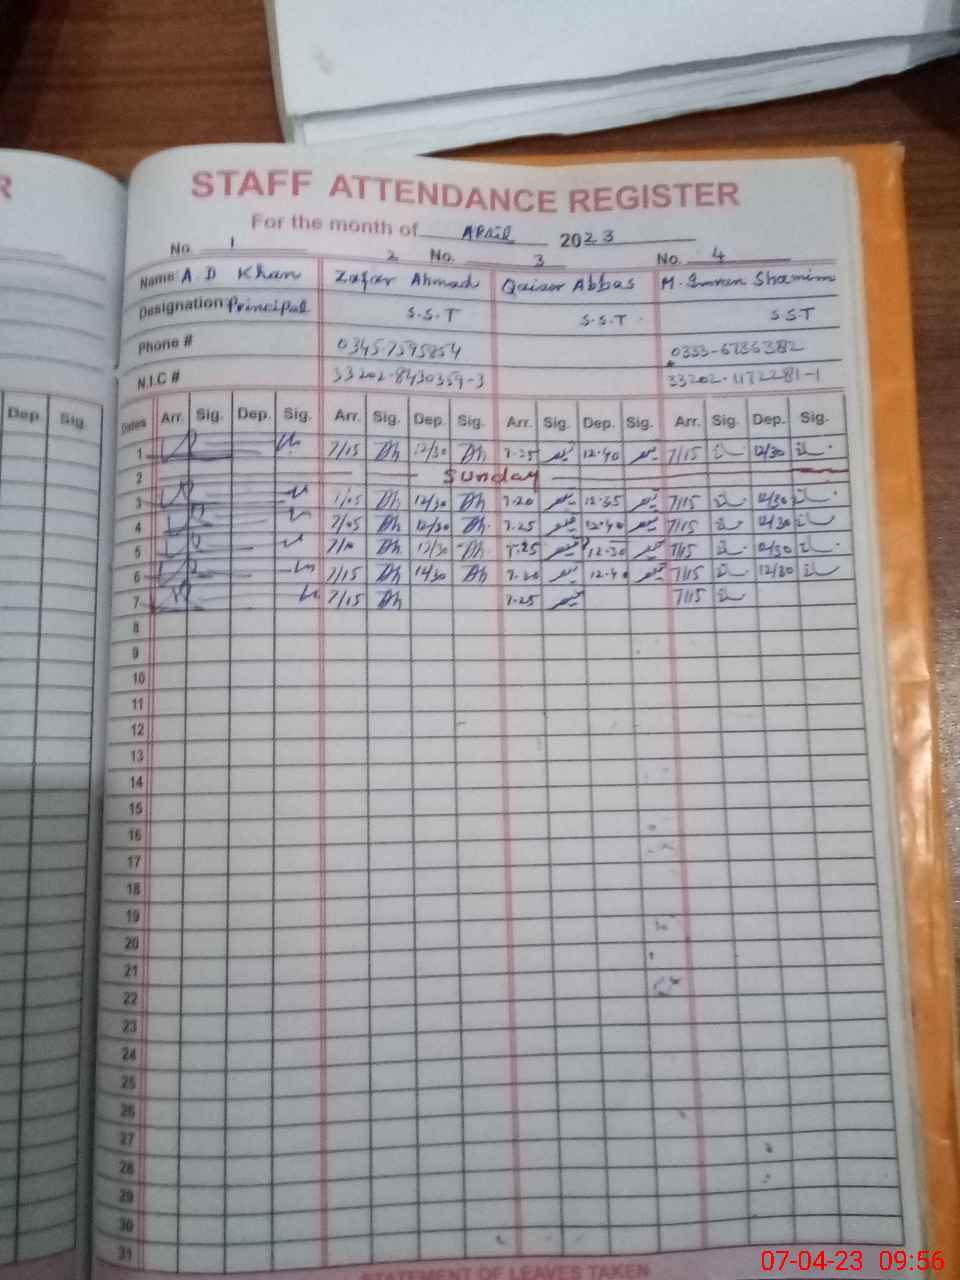 R
STAFF ATTENDANCE REGISTER
For the month of April 2023
No. 1 2 No. 3 No. 4
Name: A D Khan Zafar Ahmad Qaiser Abbas M. Imran Shamim
Designation Principal S.S.T S.S.T. S.S.T
Phone # 03457595854
N.I.C # 33202-8430359-3
Dep. Sig. Dates Arr. Sig. Dep. Sig. Arr. Sig. Dep. Sig. Arr. Sig. Dep. Sig. Arr. Sig. Dep. Sig.
1 7/15 12/30 7.25 12.40 7/15 12/30
2 Sunday
3 12/30 7.20 12.35 7/15 12/30
4 7/05 12/30 7.25 12.40 7/15 12/30
5 7/10 12/30 7.25 12.30 7/15 12/30
6 7/15 12/30 7.20 12.40 7/15 12/30
7 7/15 7.25 7/15
8
9
10
11
12
13
14
15
16
17
18
19
20
21
22
23
24
25
26
27
28
29
30
31
STATEMENT OF LEAVES TAKEN
07-04-23 09:56